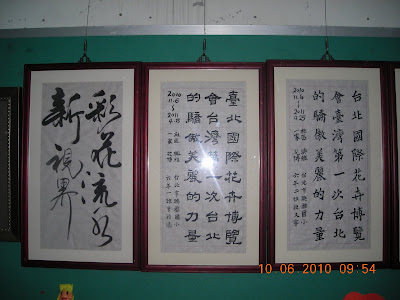 彩花流水
新視界
臺北國際花卉博覽
會台灣第一次台北
的驕傲美麗的力量
2010
11.6
2011
4.25
台北市 國小
六年一班
台北國際花卉博覽
會臺灣第一次台北
的驕傲美麗的力量
2010
2011
台北市 國小
六年二班
10.06.2010 09:54